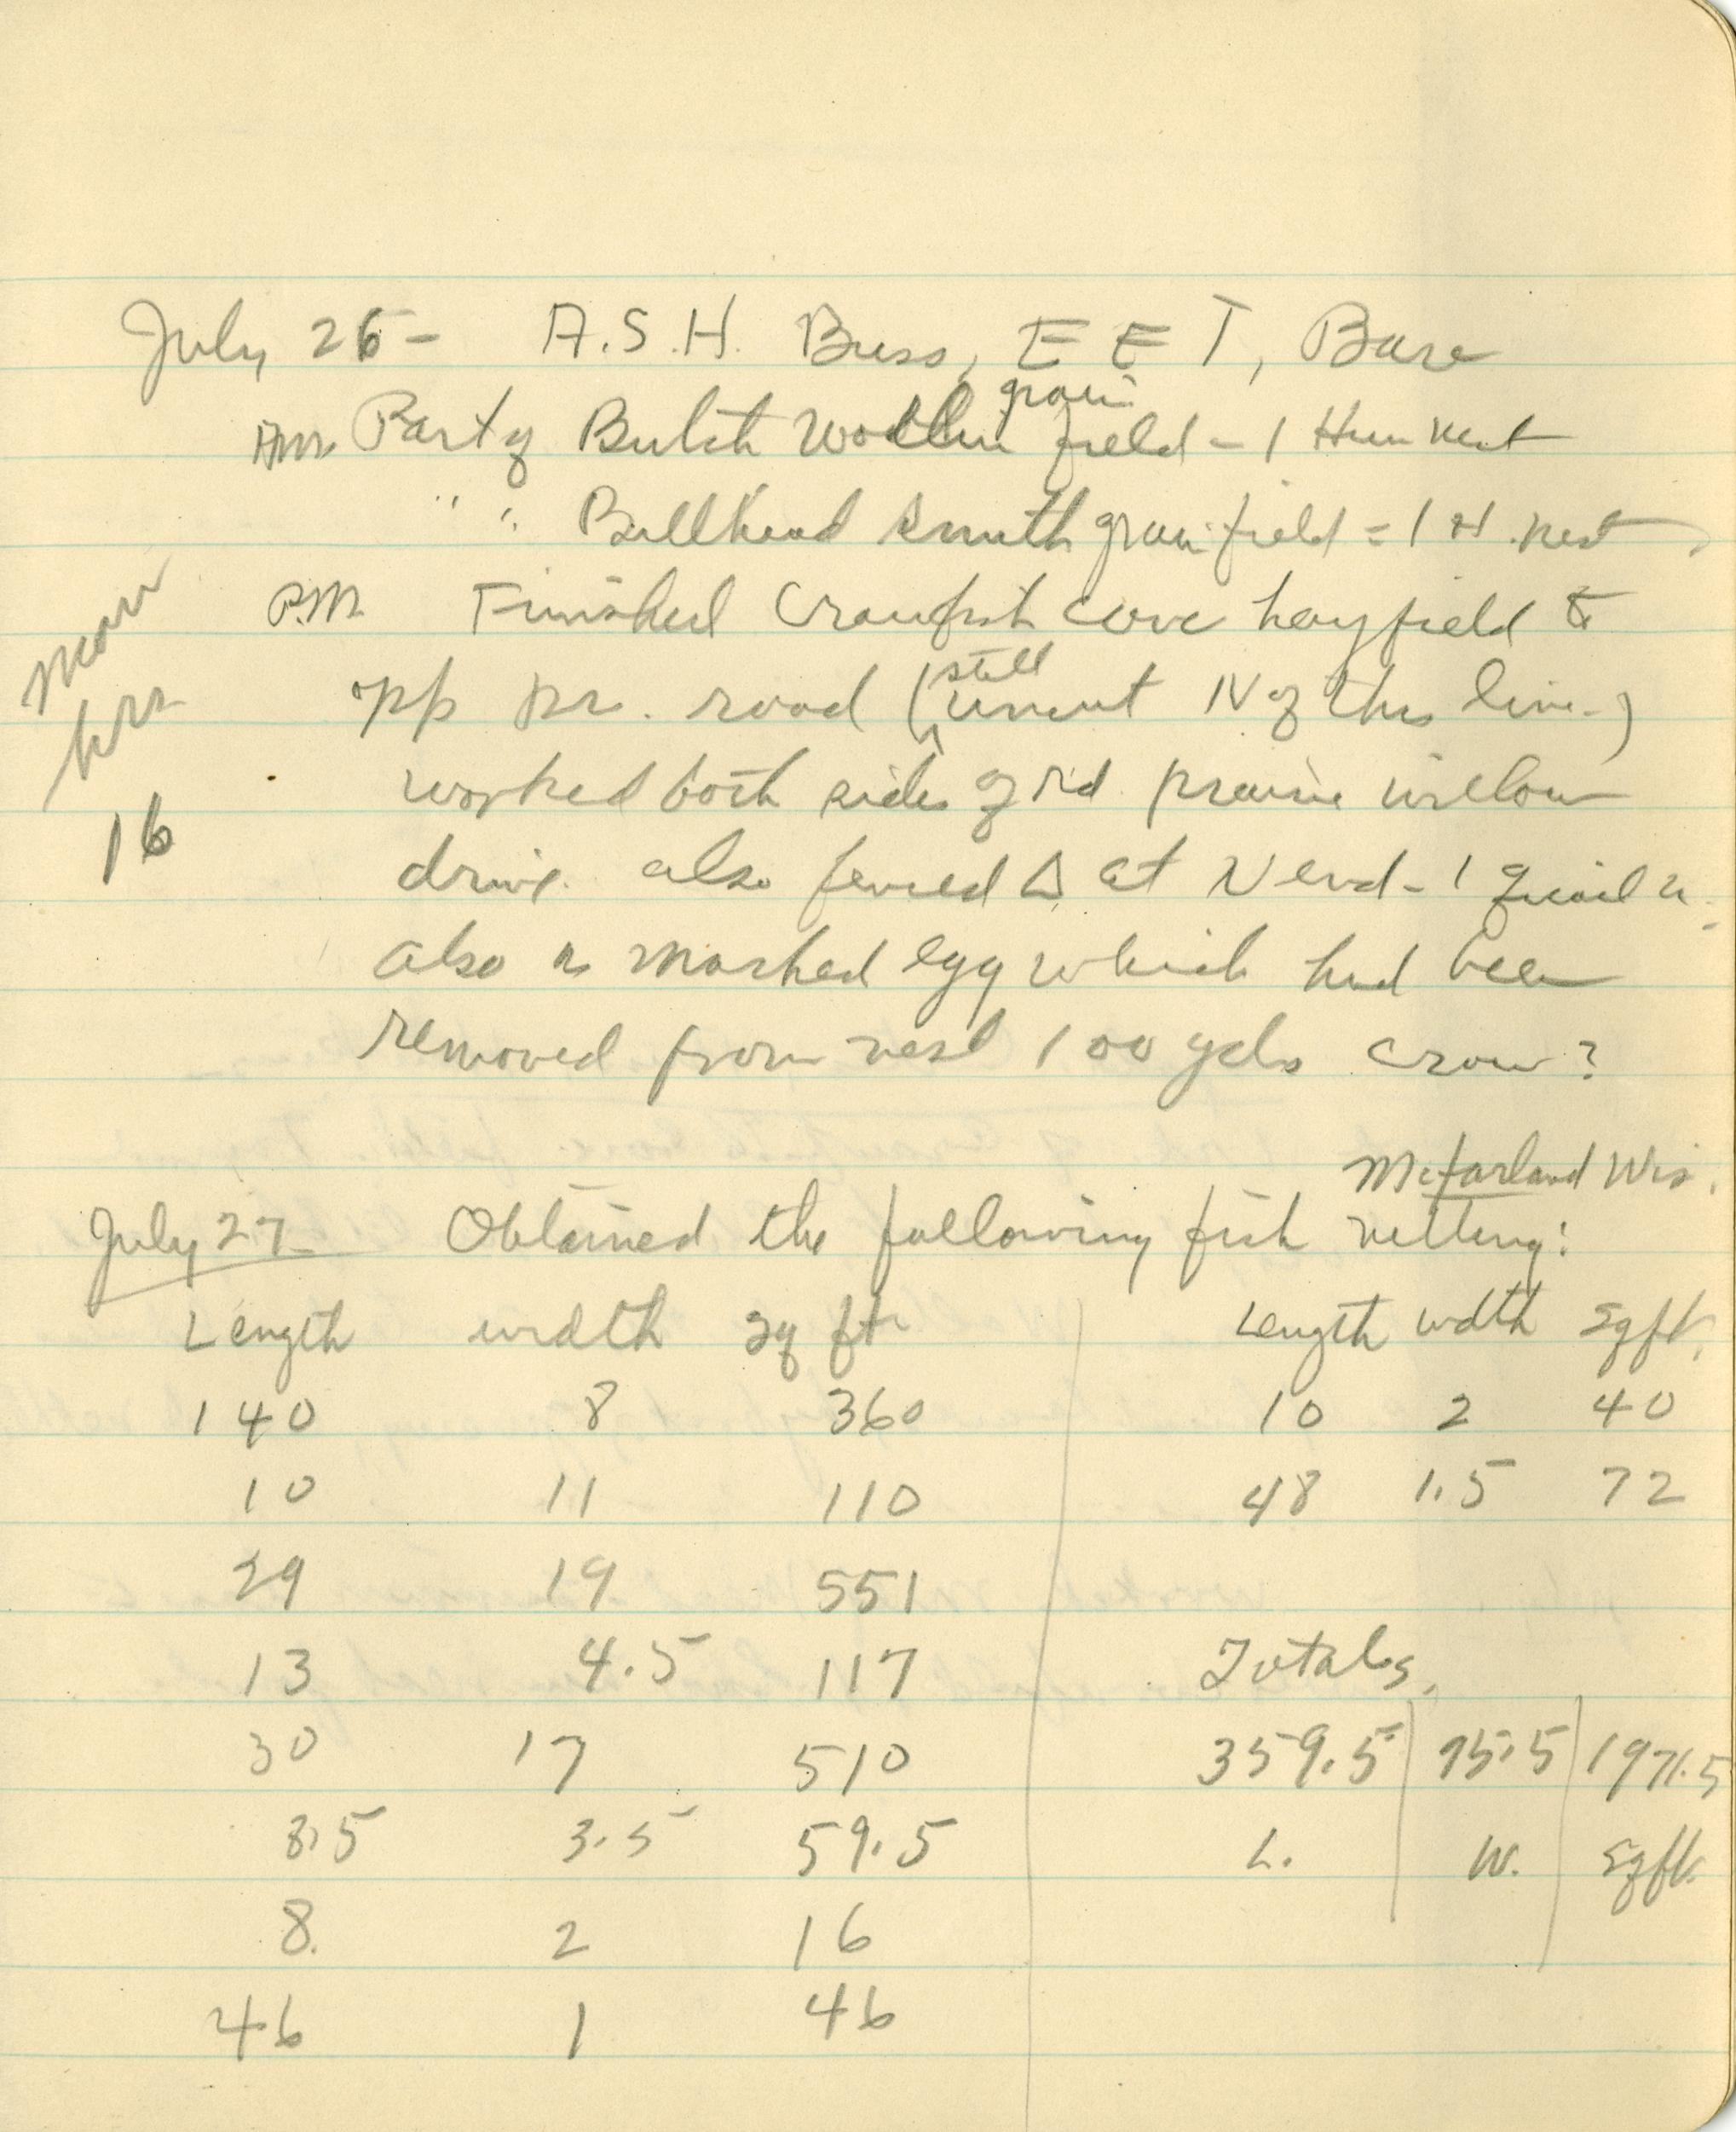 July 26- A.S.H. Buss, E E T,
Am. Part of Butch field - 1 Hun nest
grain
" " Bullhead Smith grain field = 1 H. nest
P.M. Finished Crawfish cove hayfield &
opp pr. road (still uncut N of this line.)
worked both sides of rd prairie willow
drive. also fenced △ at N end - 1 quail n.
also a marked egg which had been
removed from nest 100 yds crow?
man
hrs
16
McFarland Wis.
July 27 Obtained the following fish netting:
Length width sq ft.
140 8 360
10 11 110
29 19 551
13 4.5 117
30 17 510
8.5 3.5 59.5
8. 2 16
46 1 46
Length wdth Sqft.
10 2 40
48 1.5 72
Totals,
359.5 75.5 1971.5
L. W. Sqft.